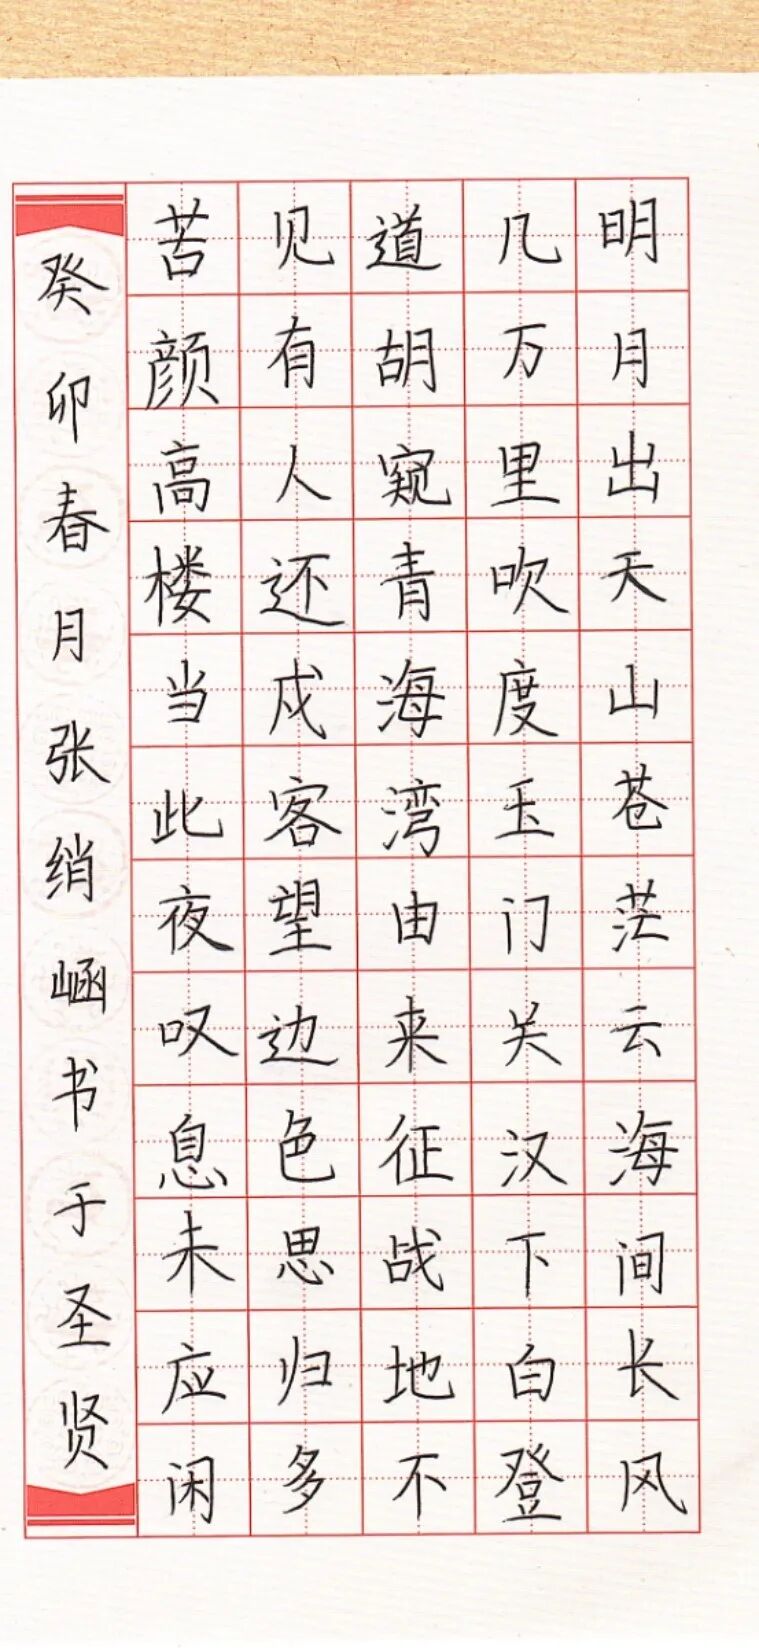 明月出天山苍茫云海间长风
几万里吹度玉门关汉下白登
道胡窥青海湾由来征战地不
见有人还戍客望边色思归多
苦颜高楼当此夜叹息未应闲
癸卯春月张绡崡书于圣贤